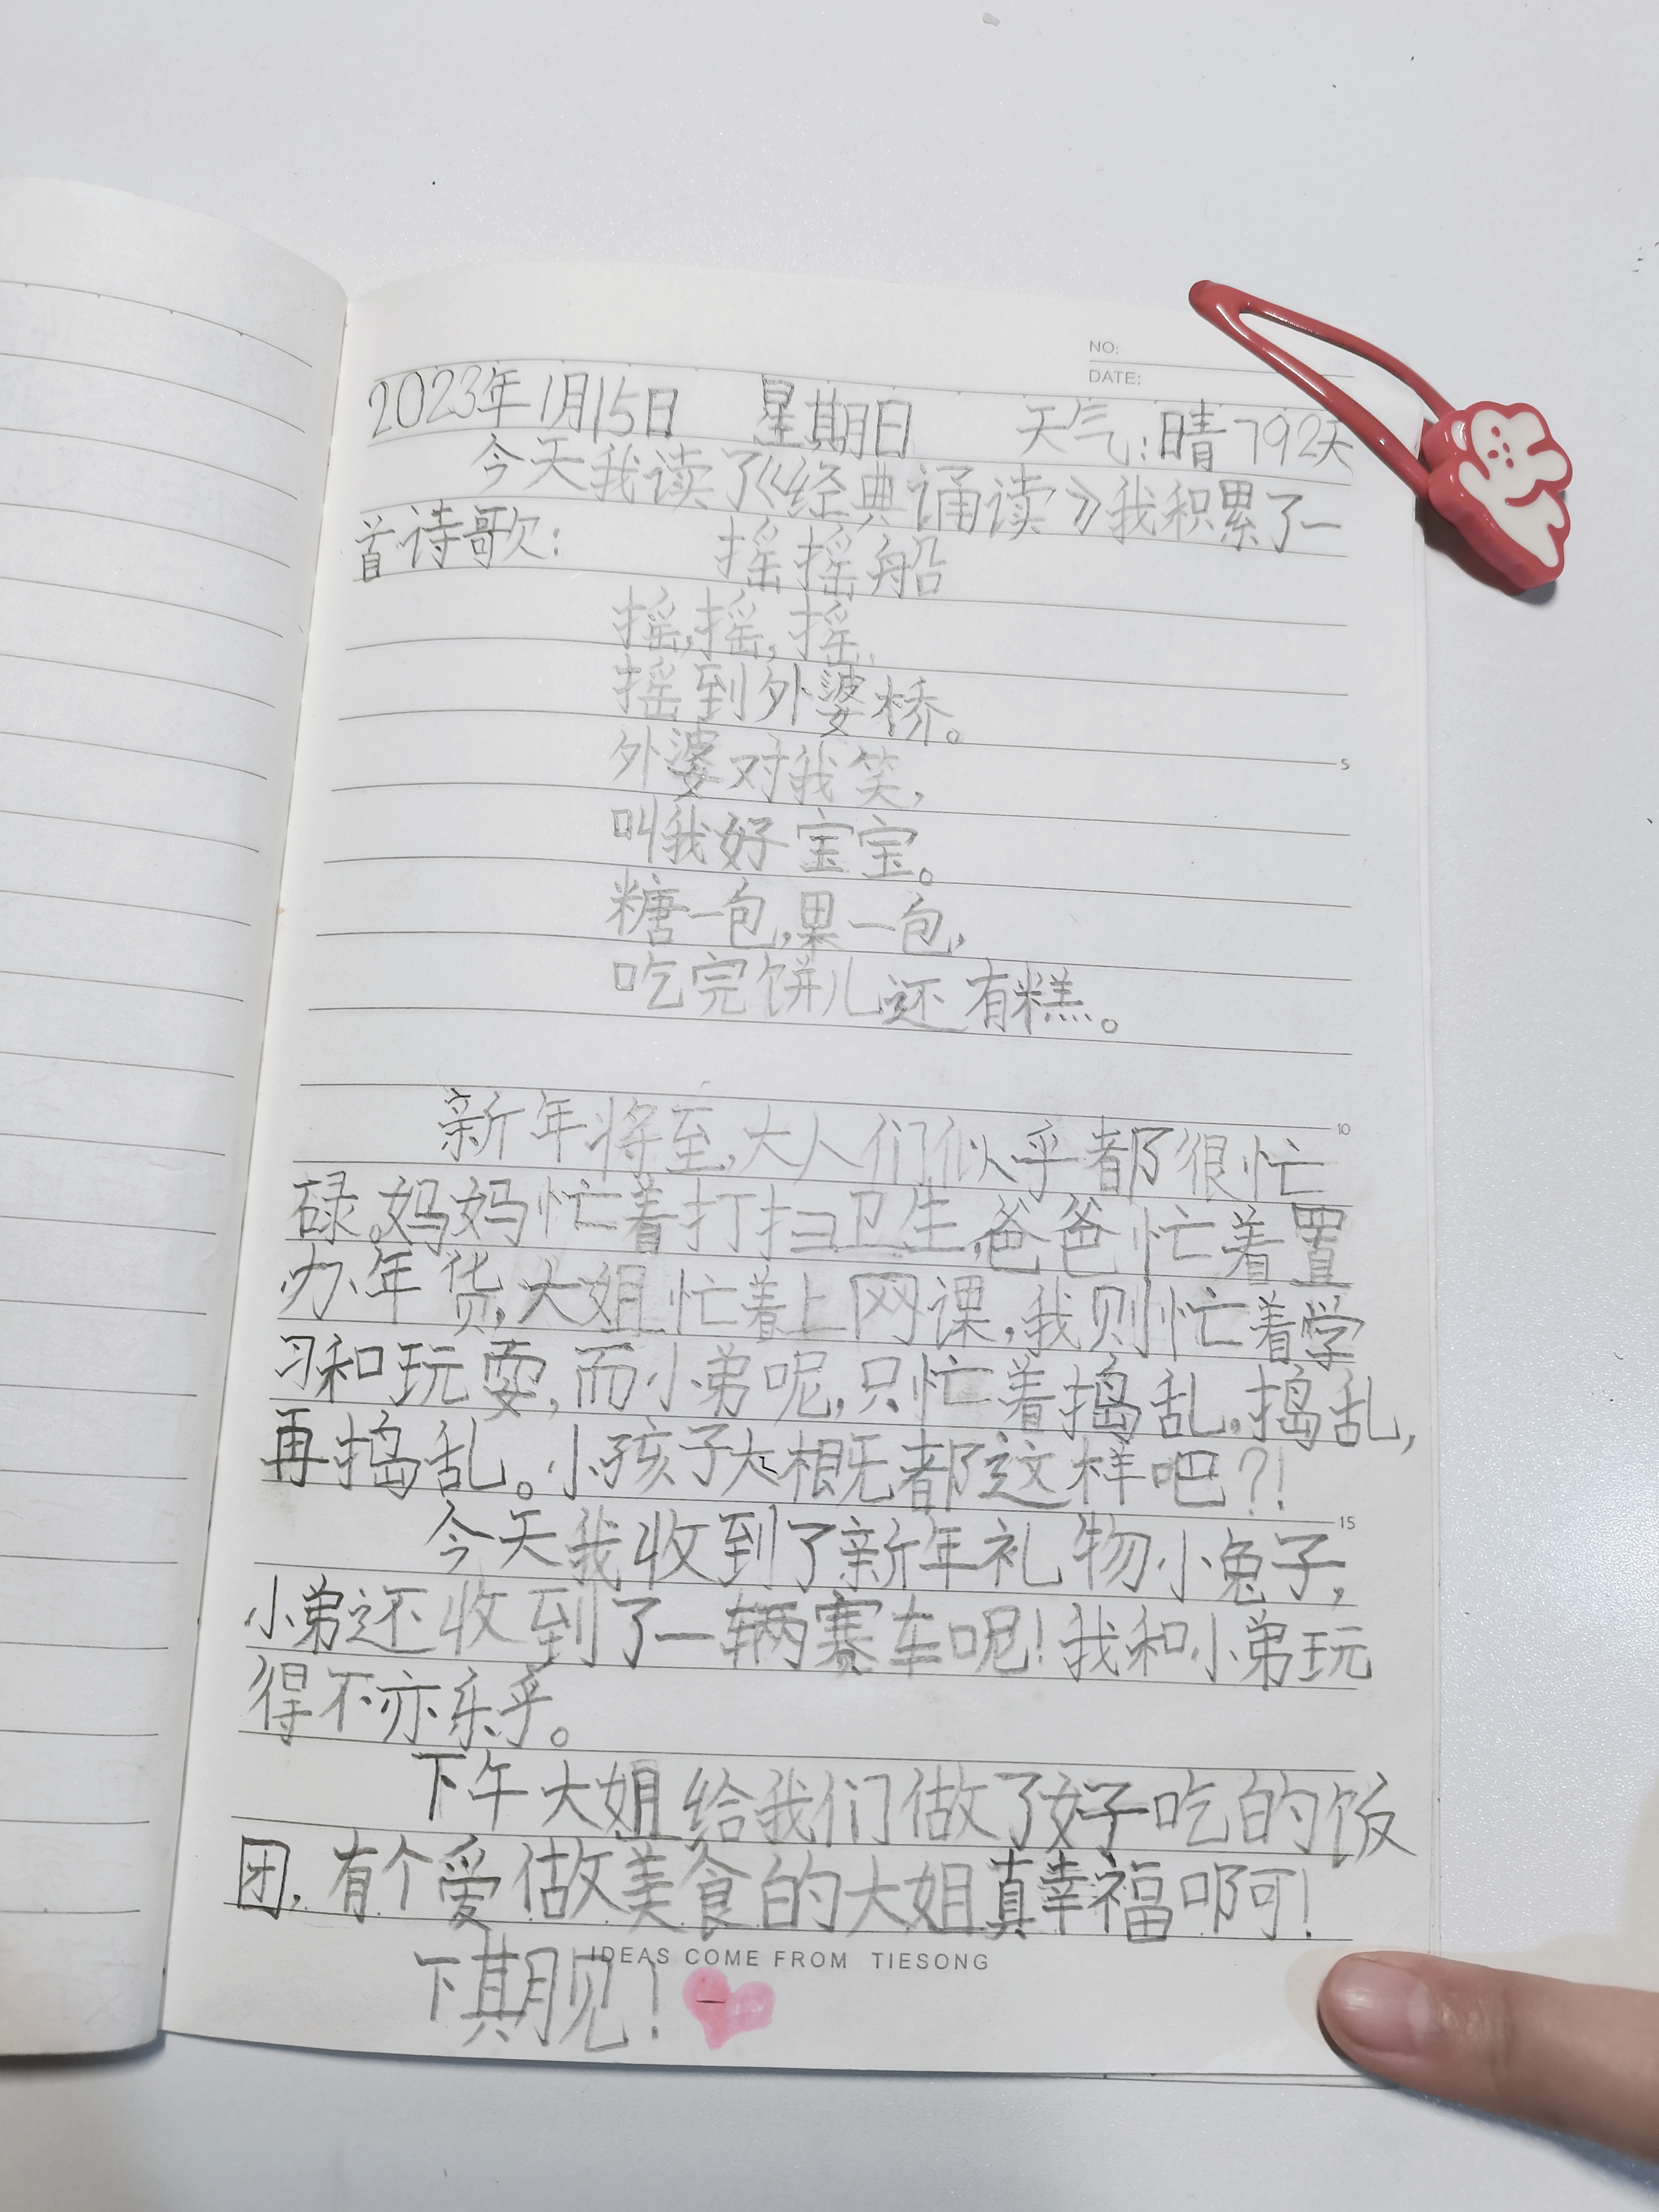 NO:
DATE:
2023年1月15日 星期日 天气:晴 792天
今天我读了《经典诵读》我积累了一
首诗歌: 摇摇船
摇,摇,摇,
摇到外婆桥。
外婆对我笑,
叫我好宝宝。
糖一包,果一包,
吃完饼儿还有糕。
新年将至,大人们似乎都很忙
碌。妈妈忙着打扫卫生,爸爸忙着置
办年货,大姐忙着上网课,我则忙着学
习和玩耍,而小弟呢,只忙着捣乱。捣乱,
再捣乱。小孩子大概都这样吧?!
今天我收到了新年礼物小兔子,
小弟还收到了一辆赛车呢!我和小弟玩
得不亦乐乎。
下午大姐给我们做了好吃的饭
团,有个爱做美食的大姐真幸福啊!
IDEAS COME FROM TIESONG
下期见!
5
10
15